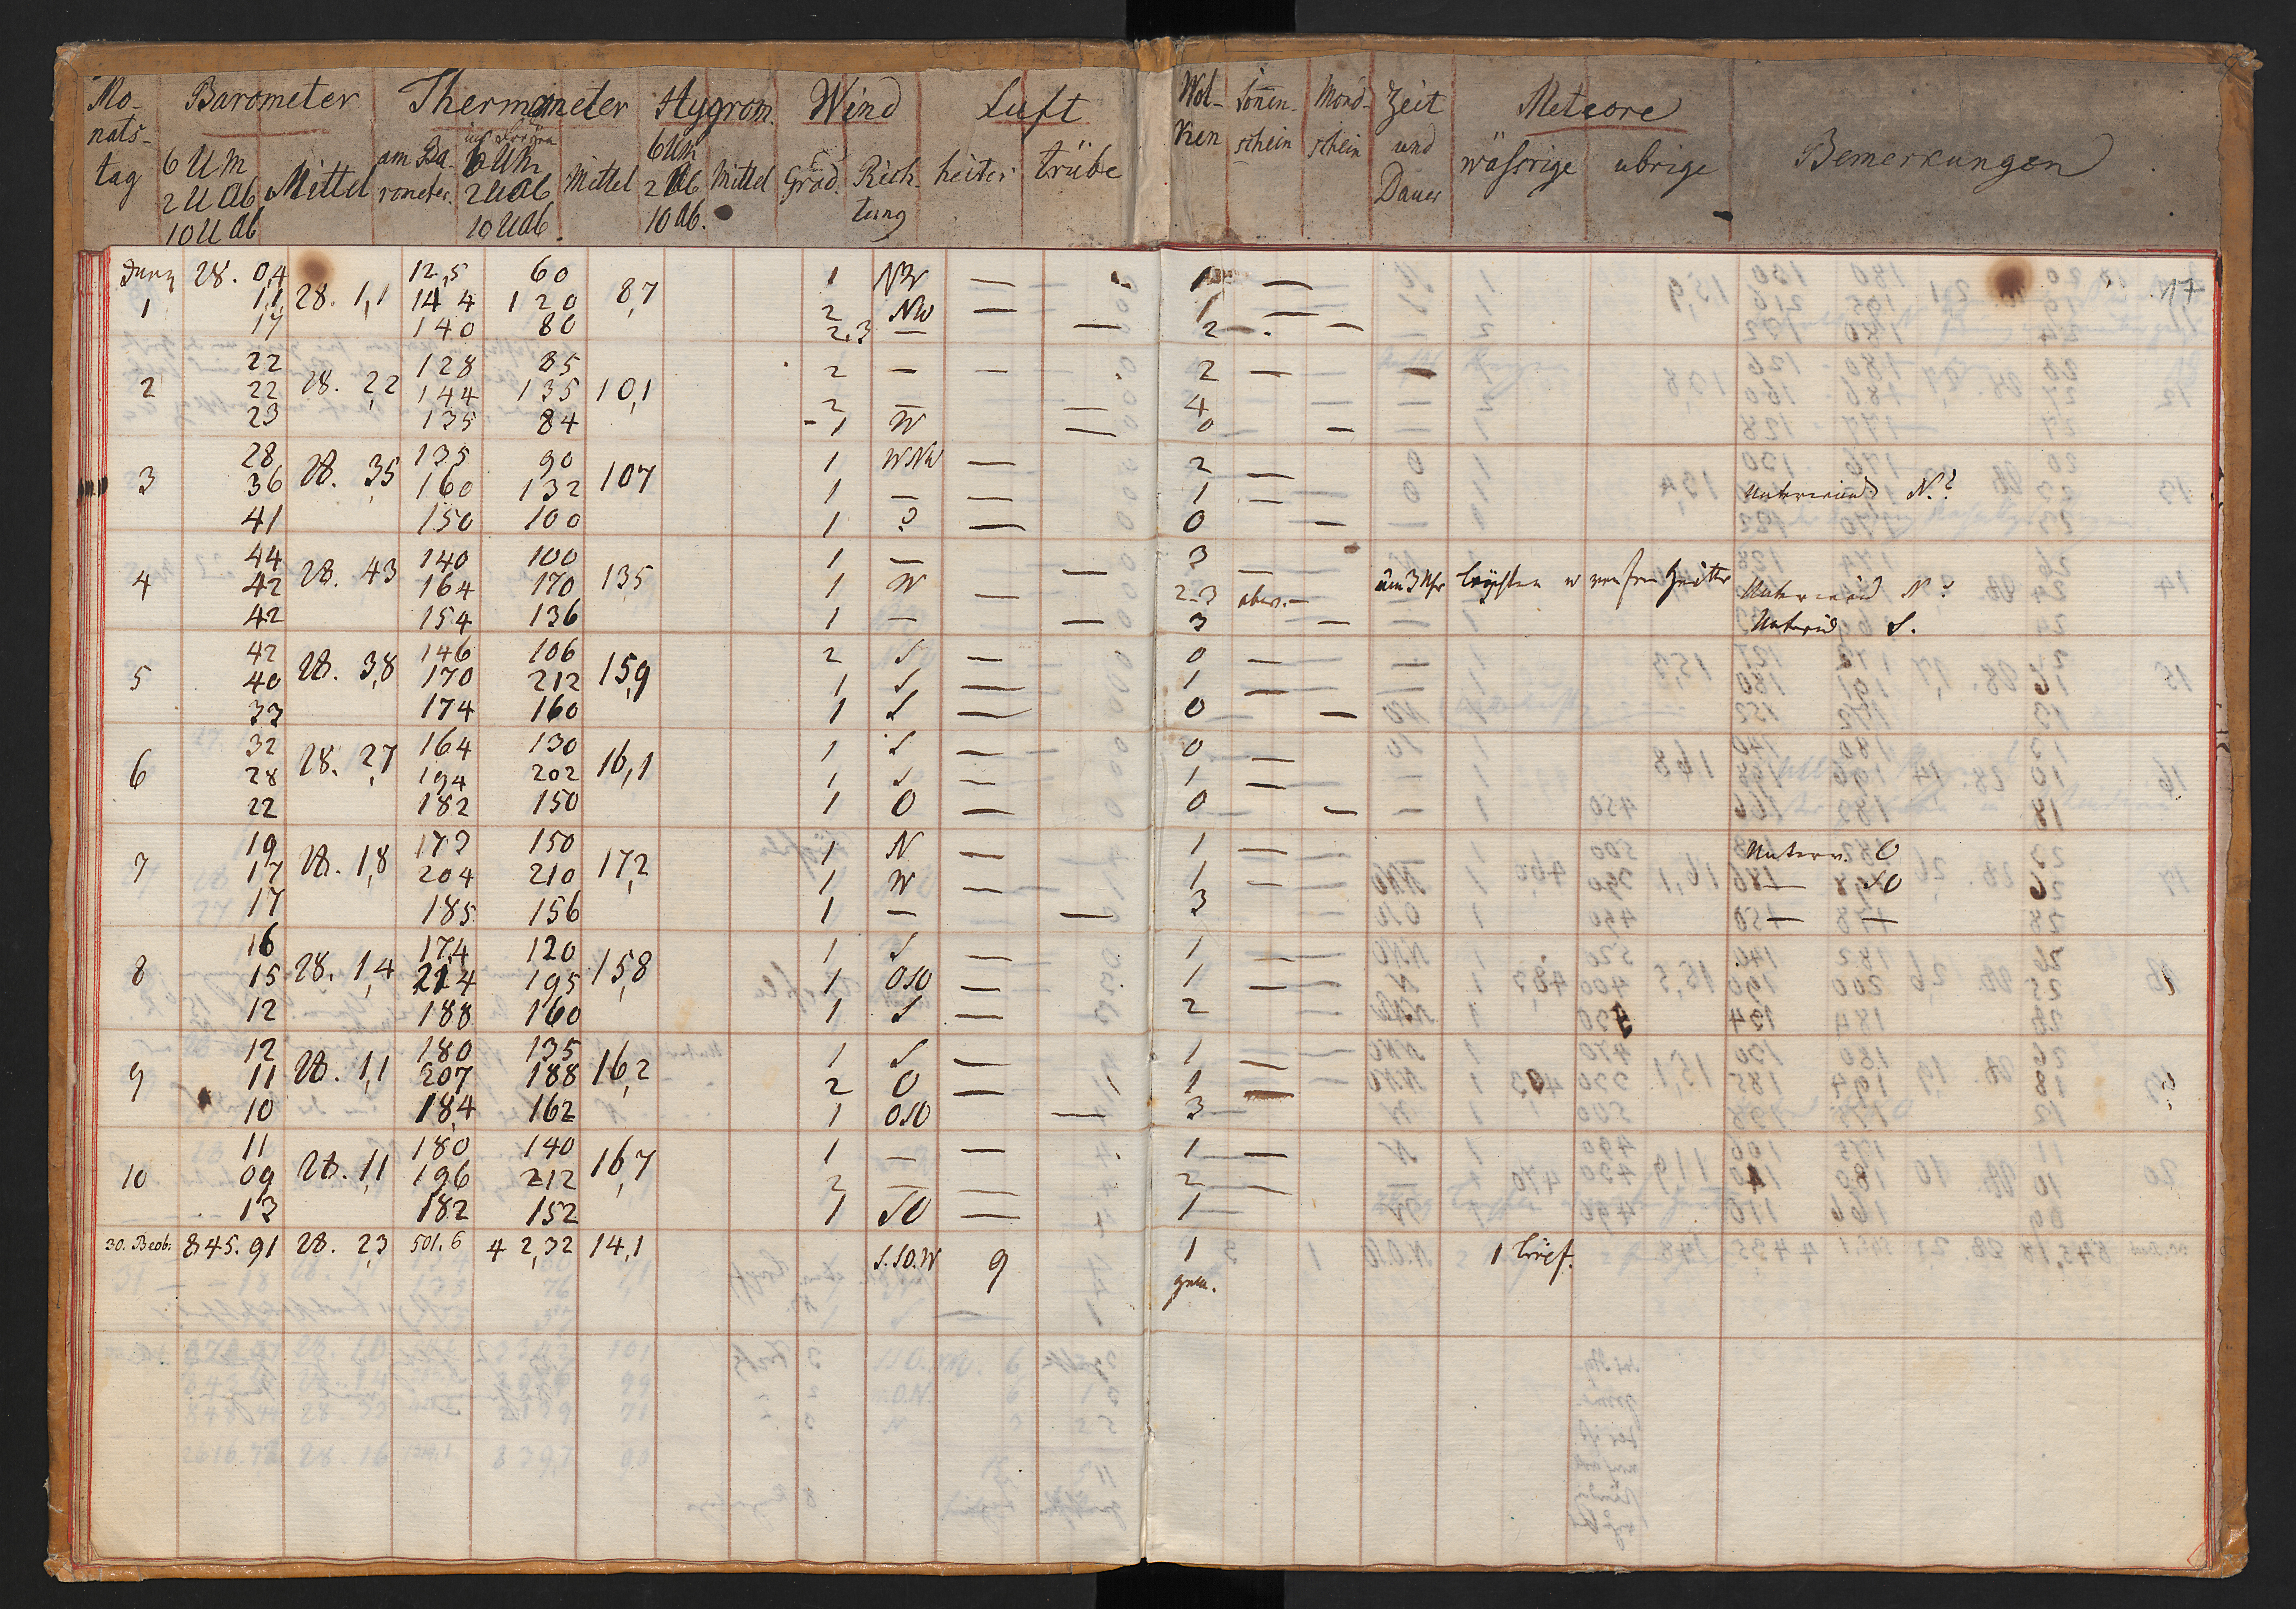 Mo- Barometer Thermometer Hygrom. Wind Luft Wol- Sonnen- Mond- Zeit Meteore
nats- ken schein schein und wäßrige übrige Bemerkungen
tag 6 UM Mittel am Ba- 6 UM Mittel 6 UM Mittel Grad. Rich- heiter trübe Dauer
2 U Ab rometer. 2 U Ab 2 Ab tung
10 U Ab 10 U Ab. 10 Ab.
17
Juny 28. 0,4 12,5 60 1 NW — 1 —
1 1,1 28. 1,1 14 4 120 8,7 2 NW — 1 —
17 140 80 2.3 — — 2 — —
22 128 85 2 — — 2 —
2 22 28. 2,2 144 135 10,1 2 — — 4
23 135 84 1 W — 0 —
28 135 90 1 WNW — 2 —
3 36 28. 3,5 160 132 107 1 — — 1 — Unterwind N.?
41 150 100 1 ? — 0 —
44 140 100 1 — — 3 —
4 42 28. 43 164 170 13,5 1 W — 2-3 abw. — um 3 Uhr Unterwind N?
42 154 136 1 — — 3 — S.
42 146 106 2 S — 0 —
5 40 28. 3,8 170 212 15,9 1 S — 1 —
33 174 160 1 S — 0 —
32 164 130 1 S — 0 —
6 28 28. 2,7 194 202 16,1 1 S — 1 —
22 182 150 1 O — 0 —
19 173 150 1 N — 1 — Unterw. O
7 17 28. 1,8 204 210 17,2 1 W — 1 — — SO
17 185 156 1 — — 3 — —
16 17,4 120 1 S — 1 —
8 15 28. 1,4 214 195 15,8 1 OSO — 1 —
12 188 160 1 S — 2
12 180 135 1 S — 1 —
9 11 28. 1,1 207 188 16,2 2 O — 1 —
10 18,4 162 1 OSO — 3
11 180 140 1 — — 1 —
10 09 28. 1,1 196 212 16,7 2 — — 2 —
13 182 152 1 SO — 1
30. Beob. 845. 91 28. 2,3 501. 6 4 2,32 14,1 S.SO.W 9 1
gem.